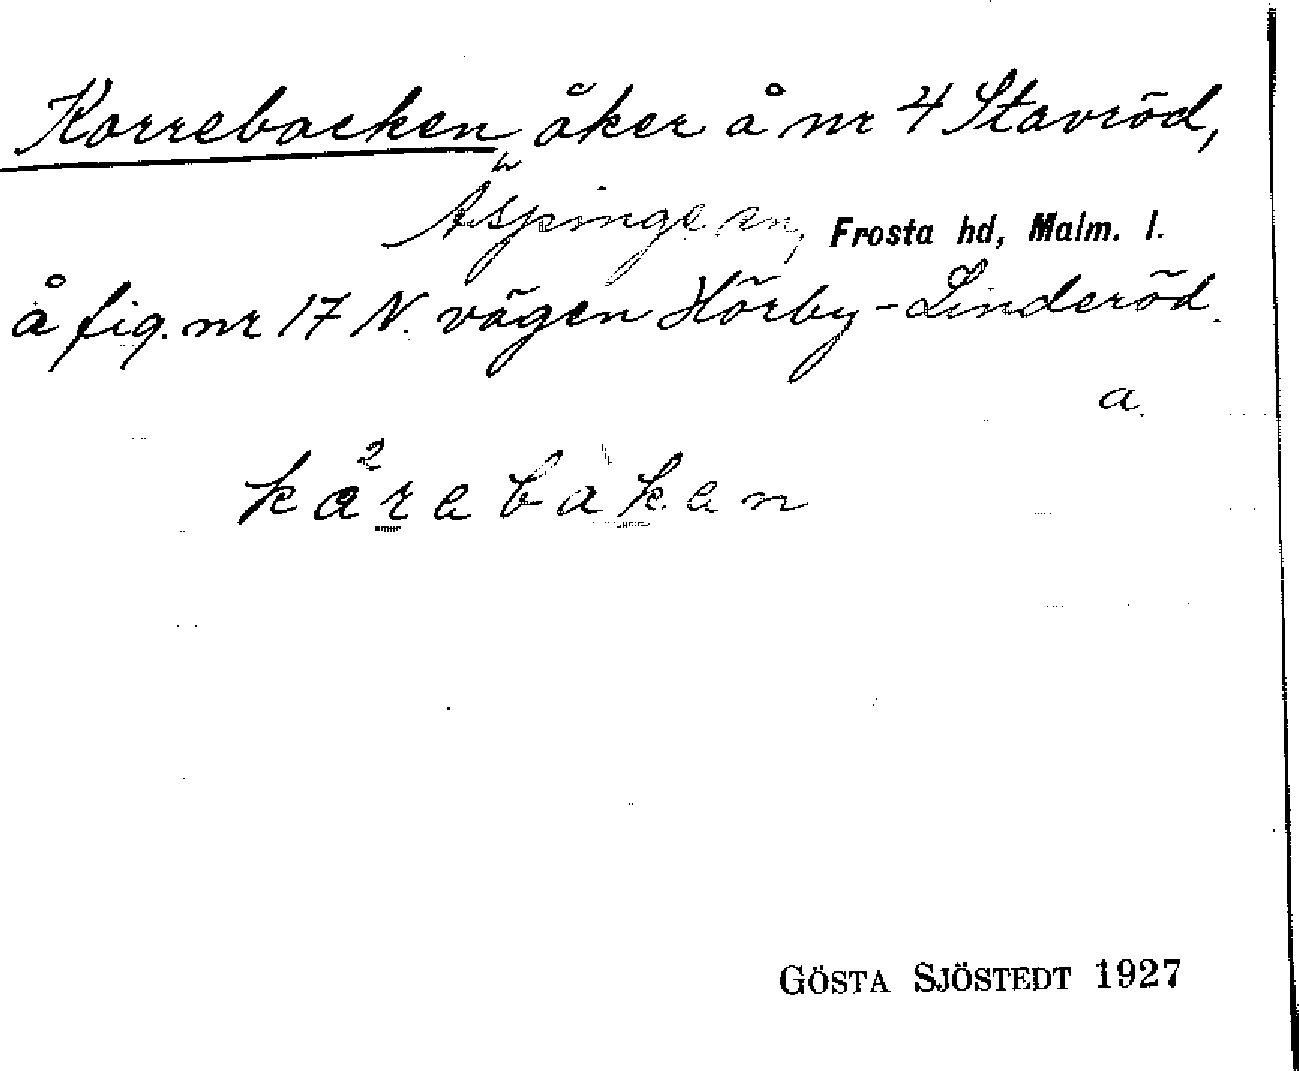 Korrebacken åker å nr 4 Stavröd,
Äspinge sn, Frosta hd, Malm. l.
å fig. nr 17 N. vägen Hörby-Linderöd.
a.
kå²rebàken
GÖSTA SJÖSTEDT 1927